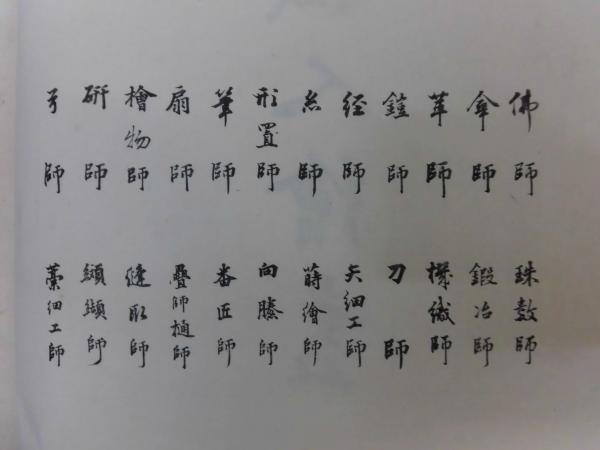 佛師
傘師
革師
鎧師
経師
糸師
形置師
筆師
扇師
檜物師
研師
弓師
珠數師
鍛冶師
機織師
刀師
矢細工師
蒔繪師
向縢師
番匠師
疊師樋師
縫取師
纐纈師
藁細工師